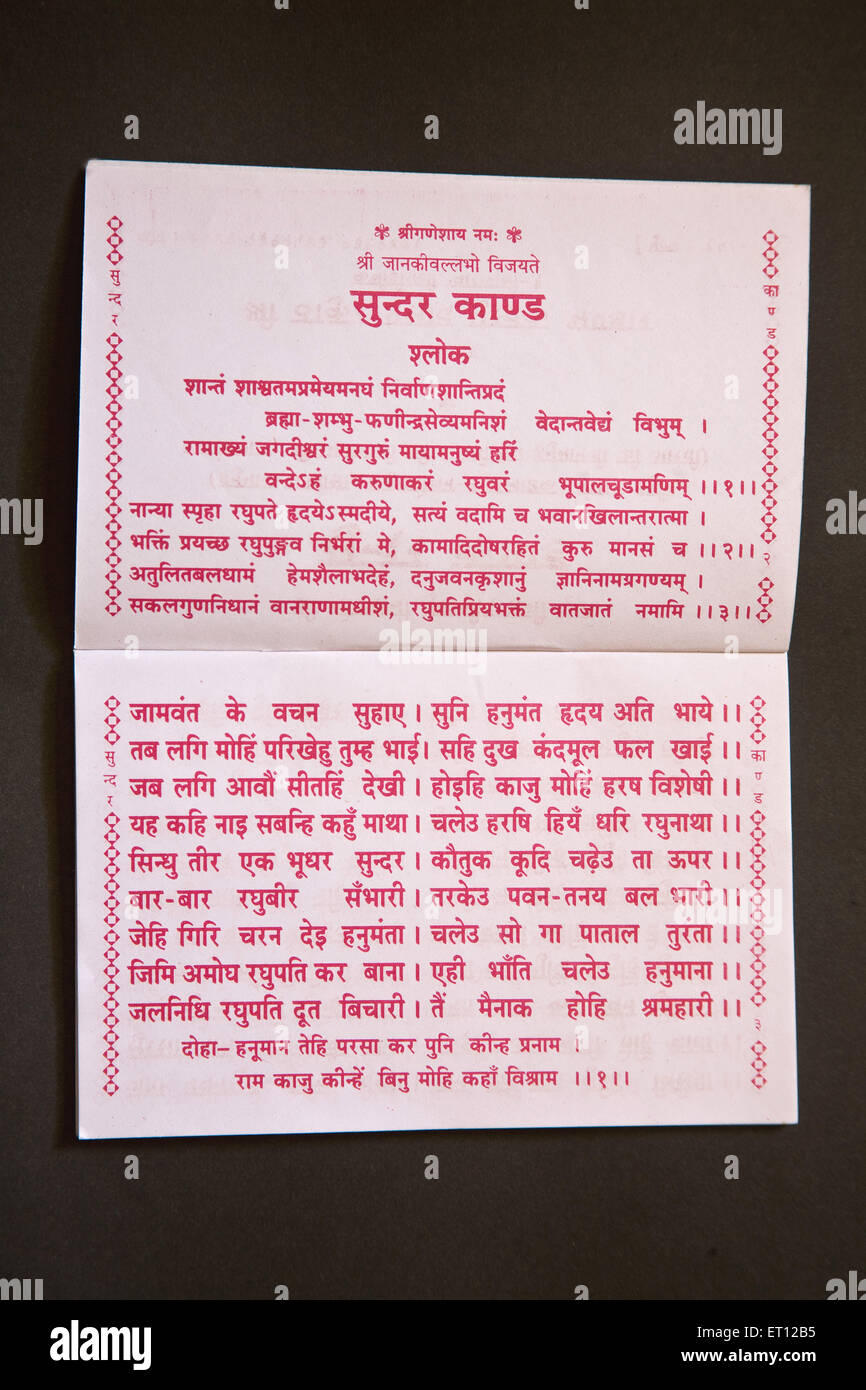 ❃ श्रीगणेशाय नमः ❃
श्री जानकीवल्लभो विजयते
सुन्दर काण्ड
श्लोक
शान्तं शाश्वतमप्रमेयमनघं निर्वाणशान्तिप्रदं
ब्रह्मा-शम्भु-फणीन्द्रसेव्यमनिशं वेदान्तवेद्यं विभुम् ।
रामाख्यं जगदीश्वरं सुरगुरुं मायामनुष्यं हरिं
वन्देऽहं करुणाकरं रघुवरं भूपालचूडामणिम् ।।१।।
नान्या स्पृहा रघुपते हृदयेऽस्मदीये, सत्यं वदामि च भवानखिलान्तरात्मा ।
भक्तिं प्रयच्छ रघुपुङ्गव निर्भरां मे, कामादिदोषरहितं कुरु मानसं च ।।२।।
अतुलितबलधामं हेमशैलाभदेहं, दनुजवनकृशानुं ज्ञानिनामग्रगण्यम् ।
सकलगुणनिधानं वानराणामधीशं, रघुपतिप्रियभक्तं वातजातं नमामि ।।३।।
सुन्दर
काण्ड
२
जामवंत के वचन सुहाए । सुनि हनुमंत हृदय अति भाये ।।
तब लगि मोहिं परिखेहु तुम्ह भाई। सहि दुख कंदमूल फल खाई ।।
जब लगि आवौं सीतहिं देखी । होइहि काजु मोहिं हरष विशेषी ।।
यह कहि नाइ सबन्हि कहुँ माथा । चलेउ हरषि हियँ धरि रघुनाथा ।।
सिन्धु तीर एक भूधर सुन्दर । कौतुक कूदि चढ़ेउ ता ऊपर ।।
बार-बार रघुबीर सँभारी । तरकेउ पवन-तनय बल भारी ।।
जेहि गिरि चरन देइ हनुमंता । चलेउ सो गा पाताल तुरता ।।
जिमि अमोघ रघुपति कर बाना । एही भाँति चलेउ हनुमाना ।।
जलनिधि रघुपति दूत बिचारी । तैं मैनाक होहि श्रमहारी ।।
दोहा- हनूमान तेहि परसा कर पुनि कीन्ह प्रनाम ।
राम काजु कीन्हें बिनु मोहि कहाँ विश्राम ।।१।।
सुन्दर
काण्ड
३
alamy
alamy stock photo
Image ID: ET12B5
www.alamy.com